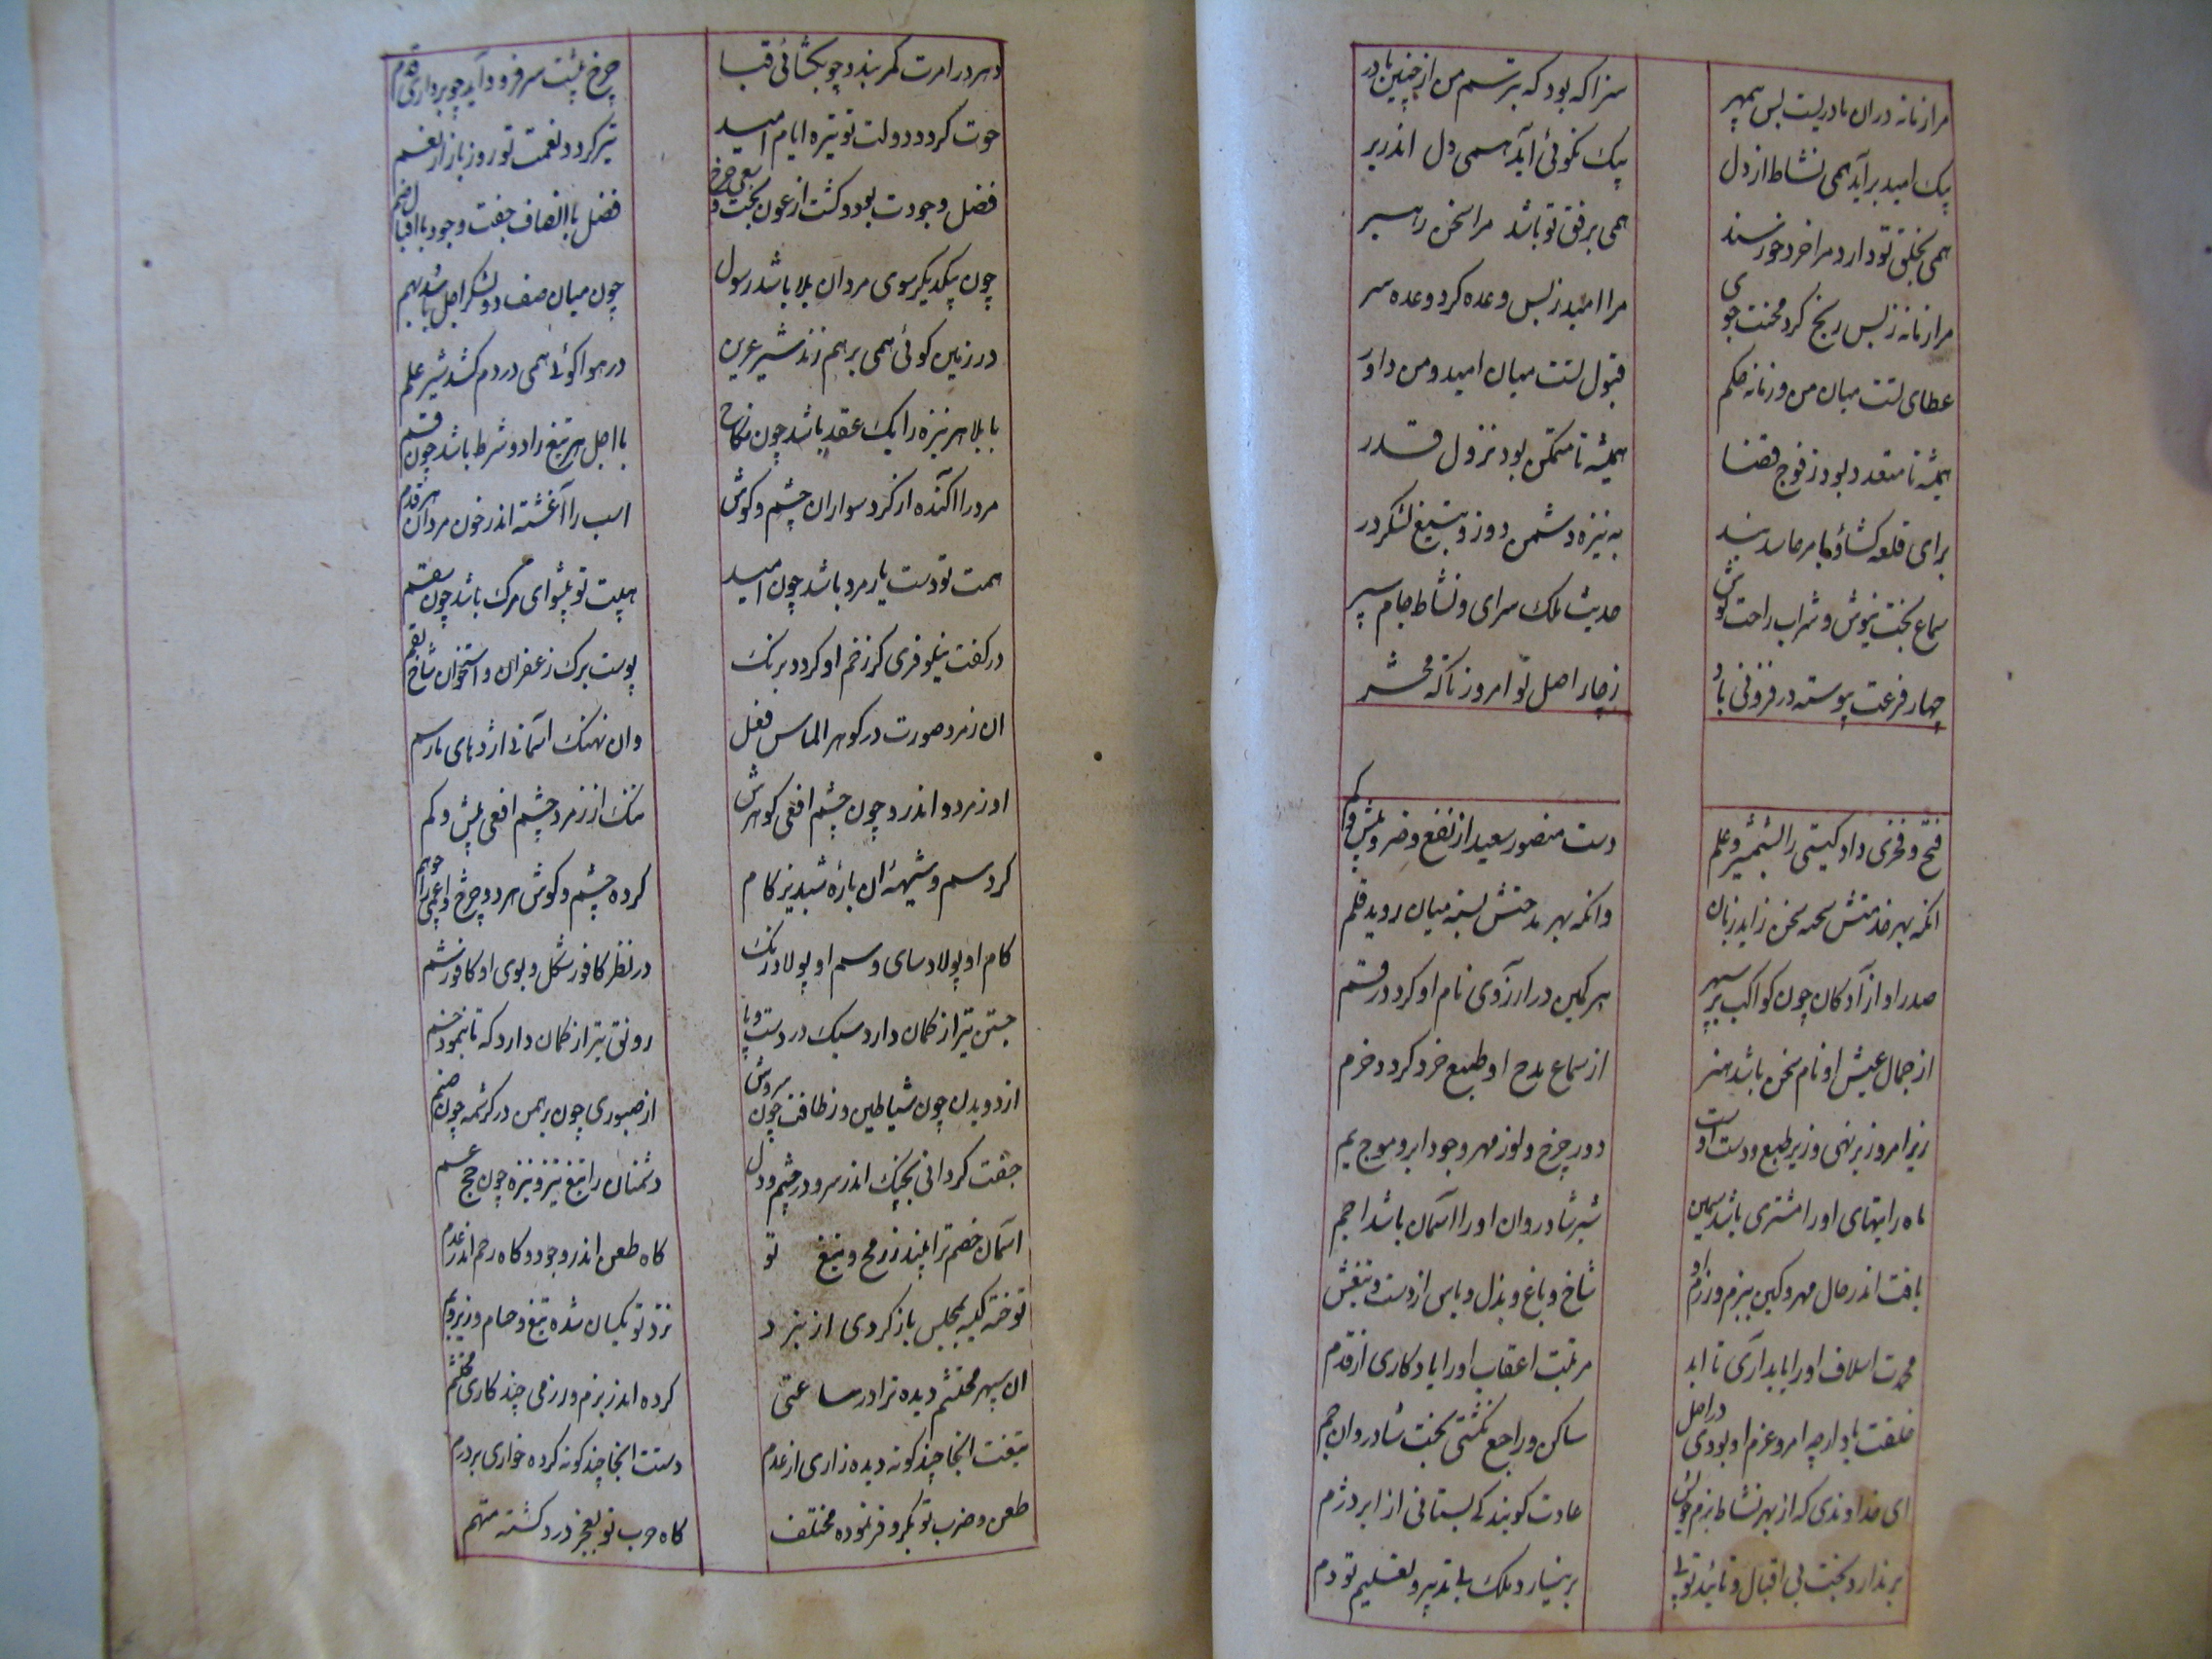 مرا زمانه دران مادریست بس بیمهر سزا که بود که بترسم من از چنین مادر
بیک امید برآید همی نشاط از دل بیک نکوئی آید همی دل اندر بر
همی بخلق تو دارد مرا خرد خورسند همی برفق تو باشد مرا سخن راهبر
مرا زمانه ز بس رنج کرد محنت جوی مرا امید ز بس وعده کرد وعده سر
عطای تست میان من و زمانه حکم قبول تست میان امید و من داور
همیشه تا متعدد بود ز فوج قضا همیشه تا متمکن بود نزول قدر
برای قلعه کشاؤ به نیزه دشمن دوز و بتیغ لشکر در
سماع بخت نیوش و شراب راحت نوش حدیث ملک سرای و نشاط جام سپر
چهار فرعت پیوسته در فزونی باد ز چار اصل تو امروز تا که محشر
فتح و فخری داد کیتی را بشمشیر و علم دست منصور سعید از نفع و ضر و بیش و کم
انکه بهر خدمتش سخن زاید زبان وانکه بهر مدحتش بسته میان روید قلم
صدر او از آزادکان چون کواکب بر سپهر هر نکین در آرزوی نام او کردد رقم
از جمال عیش او نام سخن باشد هنر از سماع مدح او طبع خرد کردد خرم
زیر امر و زیر نهی و زیر طبع و دست اوست دور چرخ و نور مهر و جود ابر و موج یم
ماه رایتهای او را مشتری باشد شیر شادروان او را آسمان باشد اجم
یافت اندر حال مهر و کین ببزم و رزم او شاخ و باغ و بذل و باس از دست و تیغش
محمدت اسلاف او را پایداری تا ابد مرتبت اعقاب او را یادکاری از قدم
خلقت باد ارچه امر و عزم او بودی در اصل ساکن و راجع نکشتی تخت شادروان جم
ای خداوندی که از بهر نشاط بزم چون عادت کویند کی بستانی از ابر دژم
بر ندارد بخت بی اقبال و تائید تو پی بر نیارد ملک بی تدبیر و تعلیم تو دم
دهر در امرت کمر بندد چو بکشائی قبا چرخ پیشت سر فرود آید چو برداری قدم
حوت کردد دولت تو تیره ایام امید تیر کردد نعمت تو روز بازار نغم
فضل وجودت بود و کشت از عون بخت و سعی چرخ فضل با انصاف جفت و جود با اقبال ضم
چون بیکدیکر سوی مردان بلا باشد رسول چون میان صف دو لشکر اجل باشد بهم
در زمین کوئی همی بر هم زند شیر عرین در هوا کوئی همی در دم کشد شیر علم
با بلا هر نیزه را یک عقد باشد چون نکاح با اجل هر تیغ را دو شرط باشد چون قسم
مرد را آکنده از کرد سواران چشم و کوش اسب را آغشته اندر خون مردان هر قدم
همت تو دست یار مرد باشد چون امید هیبت تو پیشوای مرک باشد چون سقم
در کفت نیلوفری کز زخم او کردد برنک پوست برک زعفران و استخوان شاخ بقم
ان زمرد صورت در کوهر الماس فعل وان نهنک آسمانی اژدهای مار سم
او زمرد و اندرو چون چشم افعی کوهرش ننک از زمرد چشم افعی بیش و کم
کرد سم و شیهه ان باره شبدیز کام کرده چشم و کوش هر دو چرخ
کام او پولاد سای و سم او پولاد رنک در نظر کافور شکل و بوی او کافور شم
جستن تیر از کمان دارد سبک در دست و پا رونق تیر از کمان دارد که تا بنمود خم
از دویدن چون شیاطین وز نظافت چون سروش از صبوری چون برهمن در کرشمه چون صنم
جفت کردانی بجنک اندر سر و در چشم و دل دشمنان را تیغ تیز و نیزه چون
آسمان خصم ترا بیند ز رمح و تیغ تو کاه طعن اندر وجود و کاه رحم اندر عدم
تو خته کلیه بمجلس باز کردی از نبرد نزد تو یکسان شده تیغ و جام و زیر و بم
ان سپهر محتشم دیده ترا در ساعتی کرده اندر بزم و رزمی چند کاری محتشم
تیغت انجا چند کونه دیده زاری از عدم دستت انجا چند کونه کرده خواری بر درم
طعن و ضرب تو بکر و فر نموده مختلف کاه حرب تو بعجز درد کشته متهم